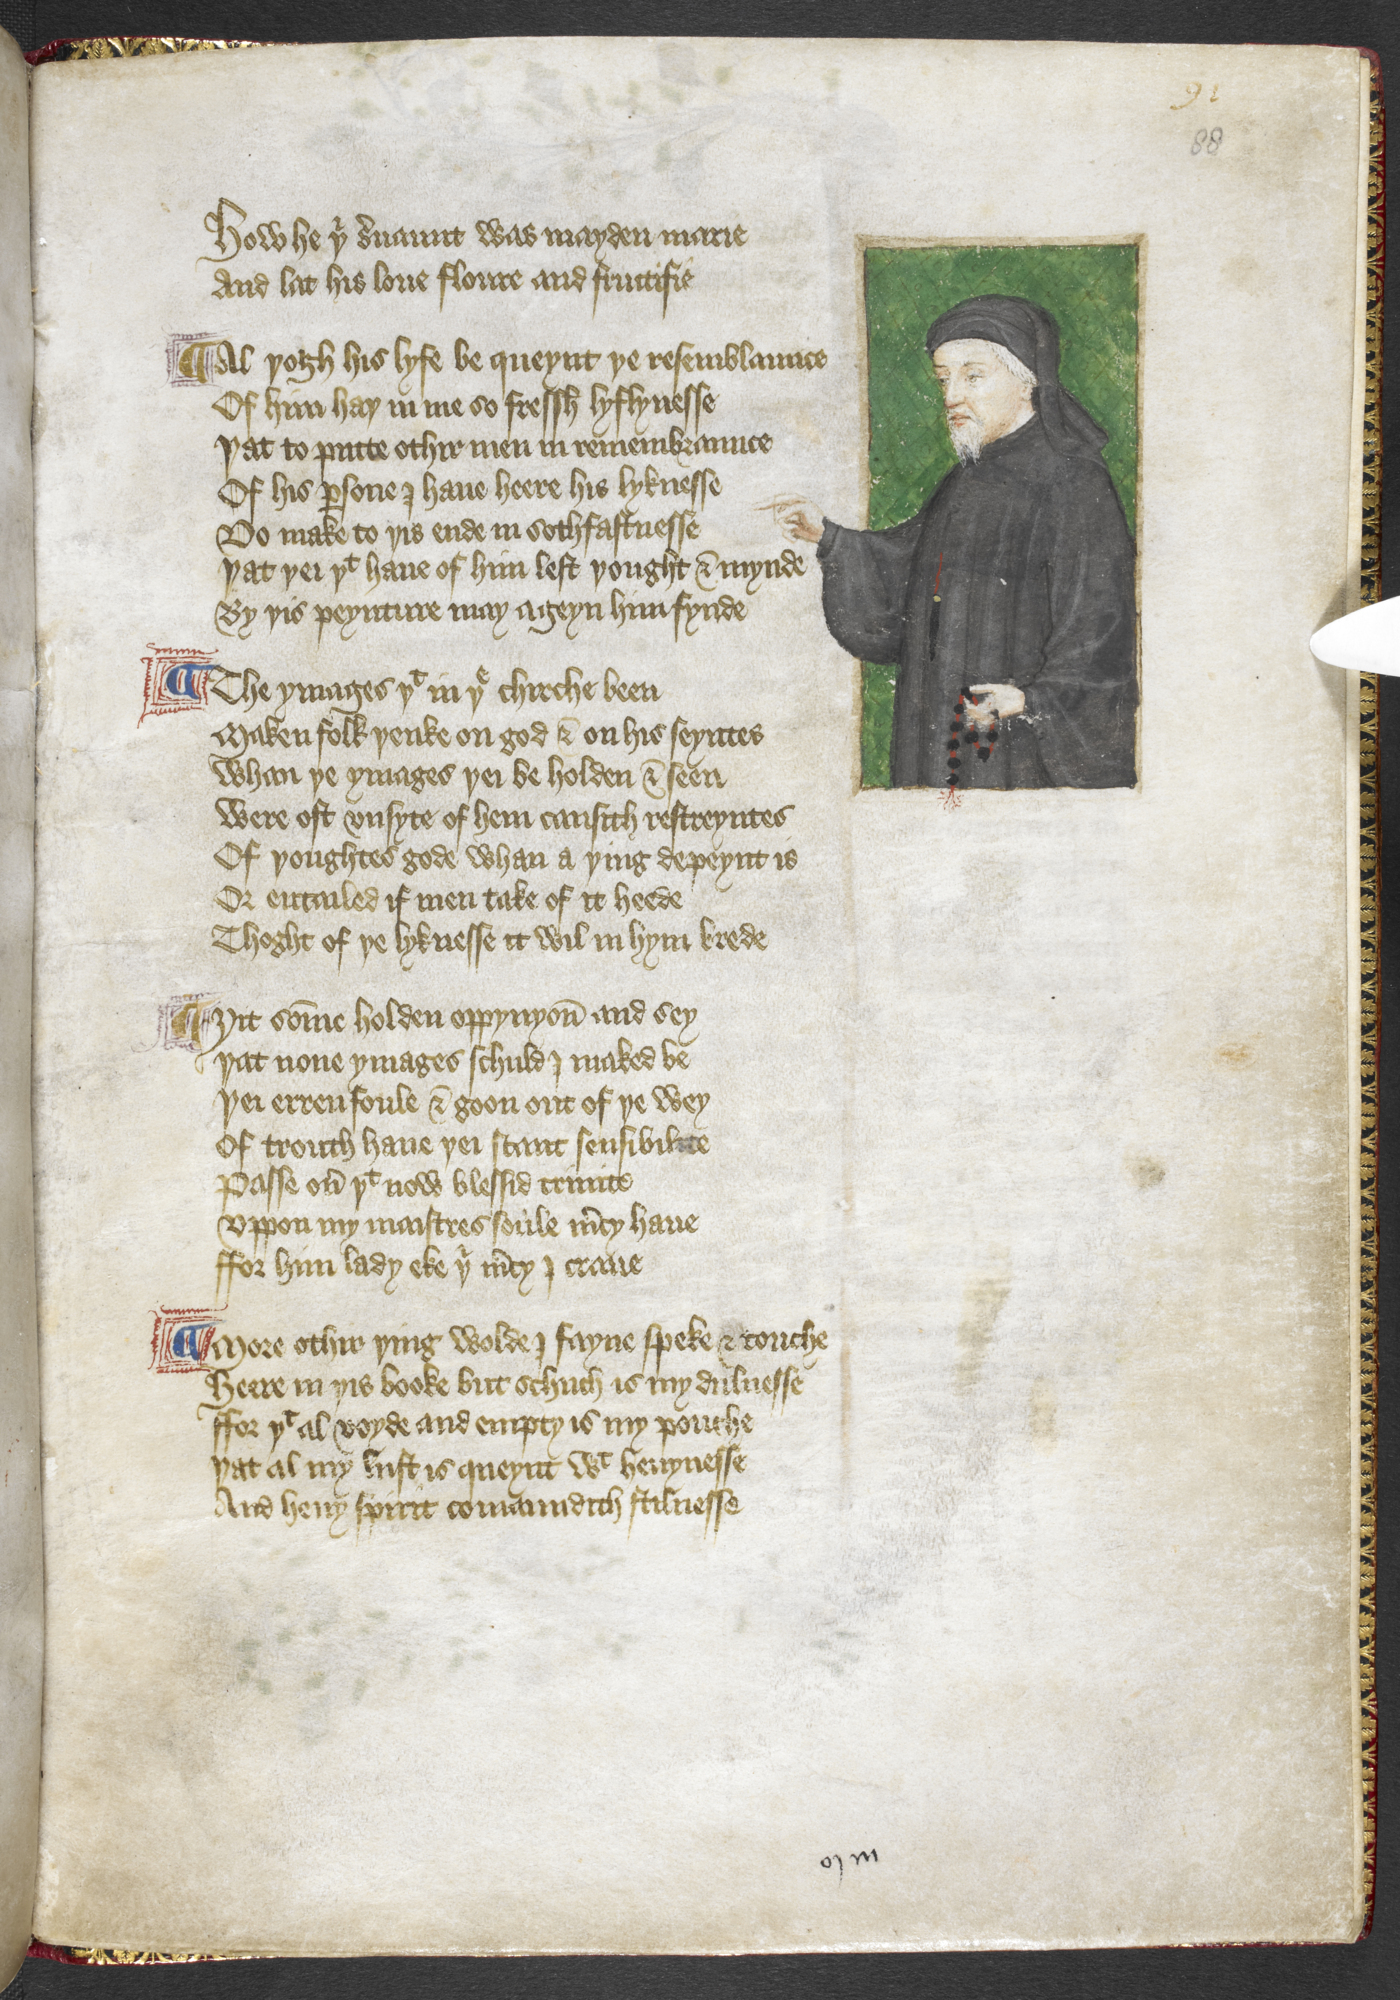 91
88
How he þͬ ẜuaunt was mayden marie
And lat his loue floure and fructifie
Al þogh his lyfe be queynt þe resemblaunce
Of him haþ in me so fressh lyflynesse
Þat to putte othir men in remembraunce
Of his ꝑsone I haue heere his lyknesse
Do make to þis ende in sothfastnesse
Þat þei þͭ haue of him left þought & mynde
By þis peynture may ageyn him fynde
The ymages þͭ in þͤ chirche been
Maken folk þenke on god & on his seyntes
Whan þe ymages þei be holden & seen
Were oft vnsyte of hem causith restreyntes
Of þoughtes gode whan a þing depeynt is
Or entailed if men take of it heede
Thoght of þe lyknesse it wil in hym brede
Yit som̄e holden oppynyon̄ and sey
Þat none ymages schuld I maked be
Þei erren foule & goon out of þe wey
Of trouth haue þei scant sensibilite
Passe ou̓ þͭ now blessid trinite
Vppon my maistres soule m̓cy haue
ffor him lady eke þͬ m̓cy I craue
More othir þing wolde I fayne speke & touche
Heere in þis booke but schuch is my dulnesse
ffor þͭ al voyde and empty is my pouche
Þat al my lust is queynt wͭ heuynesse
And heuy spirit comaundith stilnesse